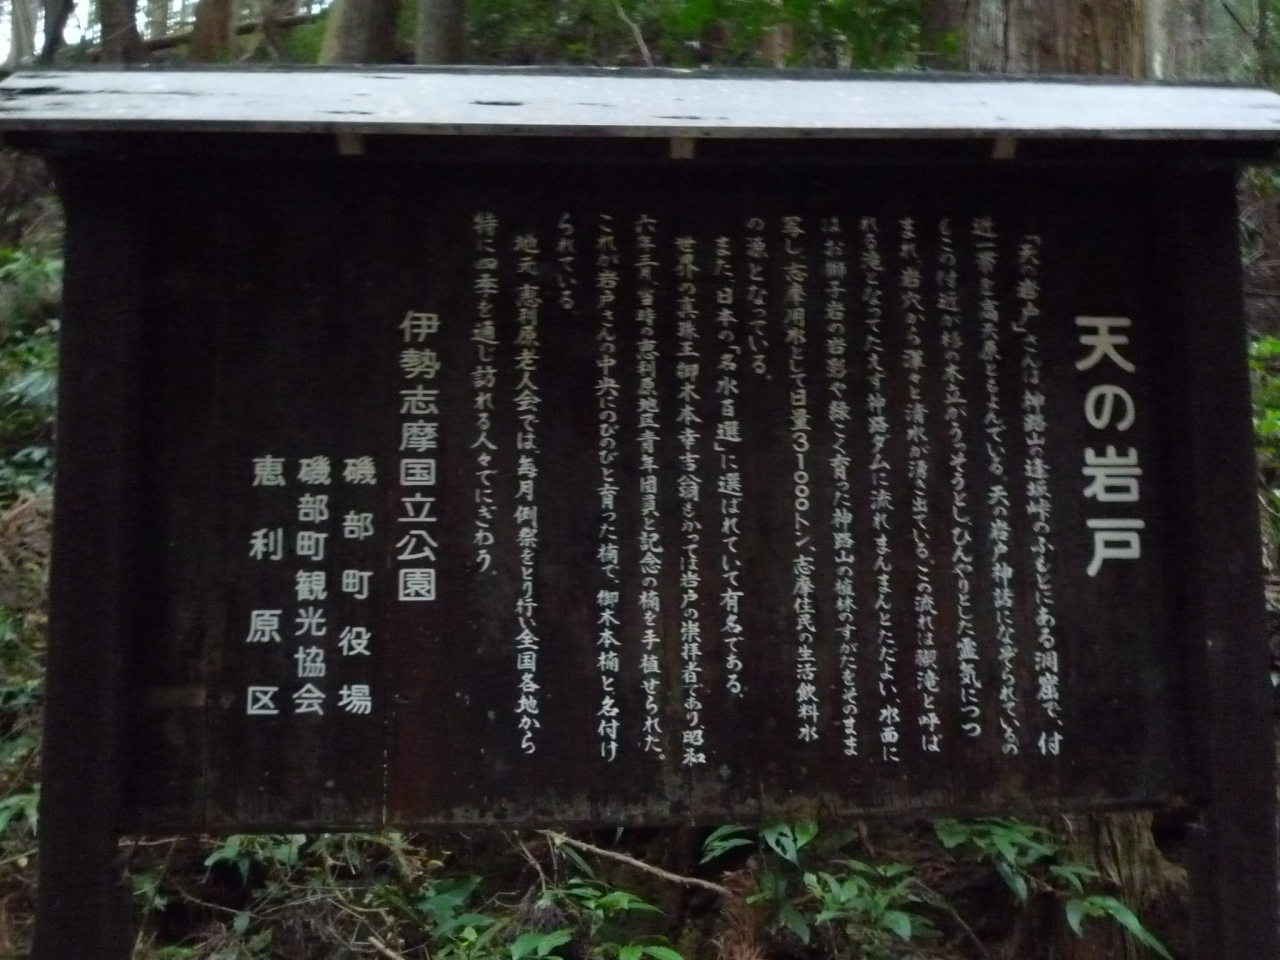 天の岩戸
「天の岩戸」さんは、神路山の逢坂峠のふもとにある洞窟で、付
近一帯を高天原ともよんでいる。天の岩戸神話になぞられているの
もこの付近が杉の木立がうっそうとし、ひんやりとした霊気につつ
まれ、岩穴から渾々と清水が湧き出ている。この流れは禊滝と呼ば
れる滝となってたえず神路ダムに流れ、まんまんとただよい、水面に
はお獅子岩の岩影や緑こく育った神路山の植林のすがたをそのまま
写し、志摩用水として日量31000トン、志摩住民の生活飲料水
の源となっている。
また、日本の「名水百選」に選ばれていて有名である。
世界の真珠王、御木本幸吉翁もかっては岩戸の崇拝者であり、昭和
六年三月、当時の恵利原地区青年団員と記念の楠を手植せられた。
これが岩戸さんの中央にのびのびと育った楠で、御木本楠と名付け
られている。
地元、恵利原老人会では、毎月例祭をとり行い全国各地から
特に四季を通じ訪れる人々でにぎわう。
伊勢志摩国立公園
磯部町役場
磯部町観光協会
恵利原区